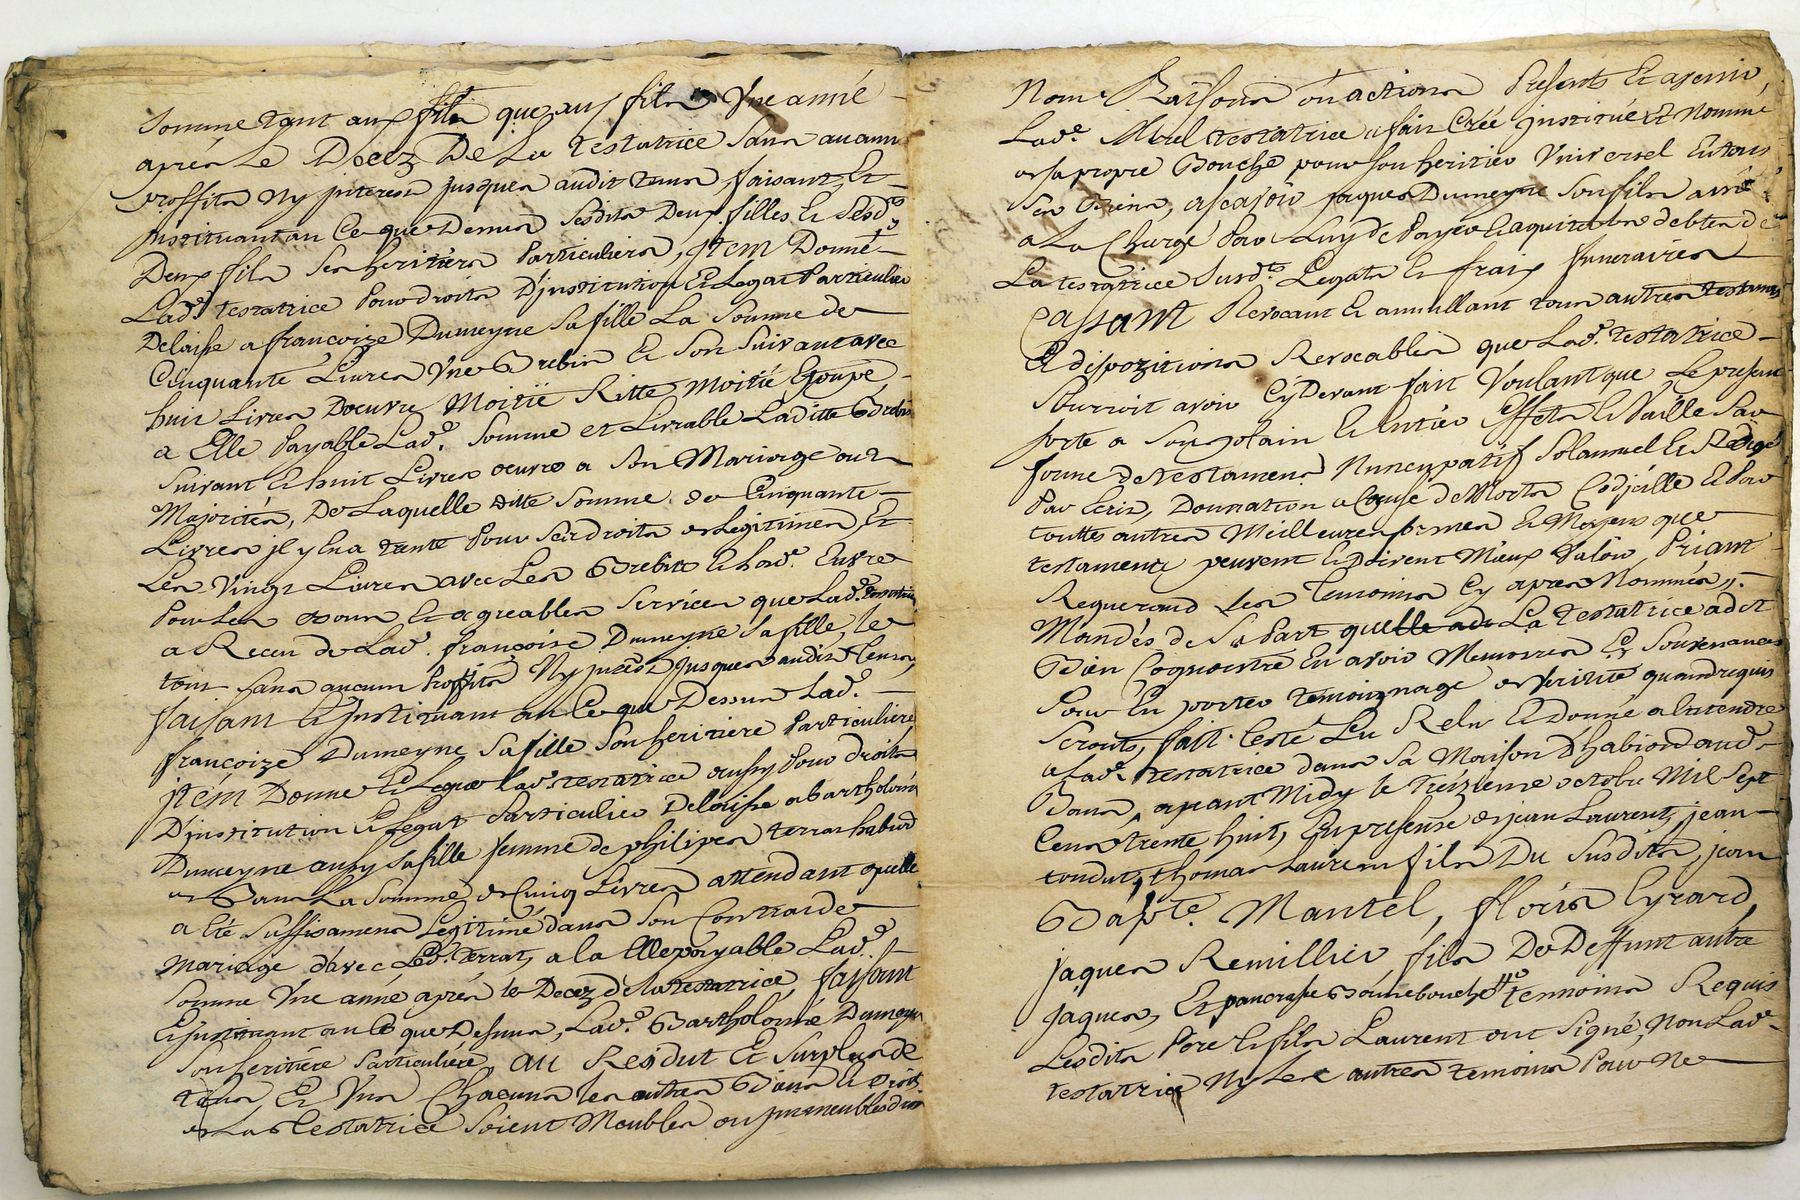 Somme tant aux fils que aux filles Une anné
aprés Le Decez De La testatrice sans aucuns
proffits Ny jnterest jusques audit tems, faisant Et
jnstituant au Ce que Dessus Sesdits Deux filles Et Sesd.ts
Deux fils Ses heritiers Particuliers, jtem Donne
Lad.e testatrice Pour droits D'jnstitution Et Legat Particulier
Delaisse a francoize Dumeyne Sa fille La Somme de
Cinquante Livres Une Brebis Et Son Suivant avec
huit Livres Doeuvre Moitié Ritte Moitié Etoupe,
a Elle Payable Lad.e Somme et Livrable Laditte Brebis
Suivant Et huit Livres oeuvre a Son Mariage ou
Majorités, De Laquelle ditte Somme de Cinquante
Livres jl y En a trente Pour Ses droits de Legitimes, Et
Les Vingt Livres avec Les Brebits Et Lad.e Euvre
Pour Les bons Et agreables Services que Lad.e testatrice
a Receu de Lad.e françoise Dumeyne Sa fille, le
tout Sans aucuns Proffits Ny jnterest jusques audit tems,
faisant Et jnstituant au Ce que Dessus Lad.e
françoize Dumeyne Sa fille Son heritiere Particuliere
jtém Donne Et Legue Lad.e testatrice aussy Pour droits
D'jnstitution Et Legat Particulier Delaisse a bartholomé
Dumeyne aussy Sa fille femme de philipes terras habit
de Bans La Somme de Cinq Livres attendant quelle
a Eté Suffisament Legitimé dans Son Contrat de
Mariage d'avec Led. terrat, a La Elle payable Lad.e
Somme Une anné aprés le Decez de La testatrice, faisant
Et jnstituant au Ce que Dessus, Lad.e Bartholomé Dumeyne
Son heritiére Particuliére, au Residut Et Surplus de
tous Et Uns Chacuns les autres Biens Et Droits
de La Testatrice Soient Meubles ou jmmeubles
Noms Raisons ou actions Presents Et avenir,
Lad.e Morel testatrice a fait Créé jnstitué Et Nommé
de Sa propre Bouche pour Son heritier Universel En tous
Ses Biens, ascavoir jaques Dumeyne Son fils
a La Charge Par Luy de Payer Et aquiter Les debtes de
La testatrice Susd.ts Legats Et fraix funeraires
Cassant Revocant Et annullant tous autres testamens
Et dispozitions Revocables que Lad.e testatrice
Pourroit avoir Cy Devant fait Voulant que Le present
sorte a Son plain Et Entier Effets Et Vaille Par
forme de testament Nuncupatif Solannel Et Redigé
Par Ecrit, Donnation a Cause de Morts Codjcille Et Par
touttes autres Meilleures formes Et Moyens que
testaments peuvent Et doivent Mieux Valoir, Priant
Requerand Les Temoins Cy apres Nommés,
Mandés de Sa Part quelle ade La testatrice a dit
Bien Cognoistre En avoir Memoires Et Souvenances
Pour En porter temoignage de Verité quand requis
Seront, fait Leté Lu Relu Et donné a Entendre
a Lad.e testatrice dans Sa Maison D'habition aud.
Bans, avant Midy le treizieme octobre Mil Sept
Cens trente huit, En presense de jean Laurent, jean
tondut, thomas Laurent fils Du Susdits, jean
Bap.te Mantel, floris Eyrard,
jaques Remillier fils De Deffunt autre
jaques, Et pancrasse Bonnebouche temoins Requis
Lesdits Pere Et fils Laurent ont Signé, Non Lad.e
testatrice Ny Les autres temoins Pour Ne